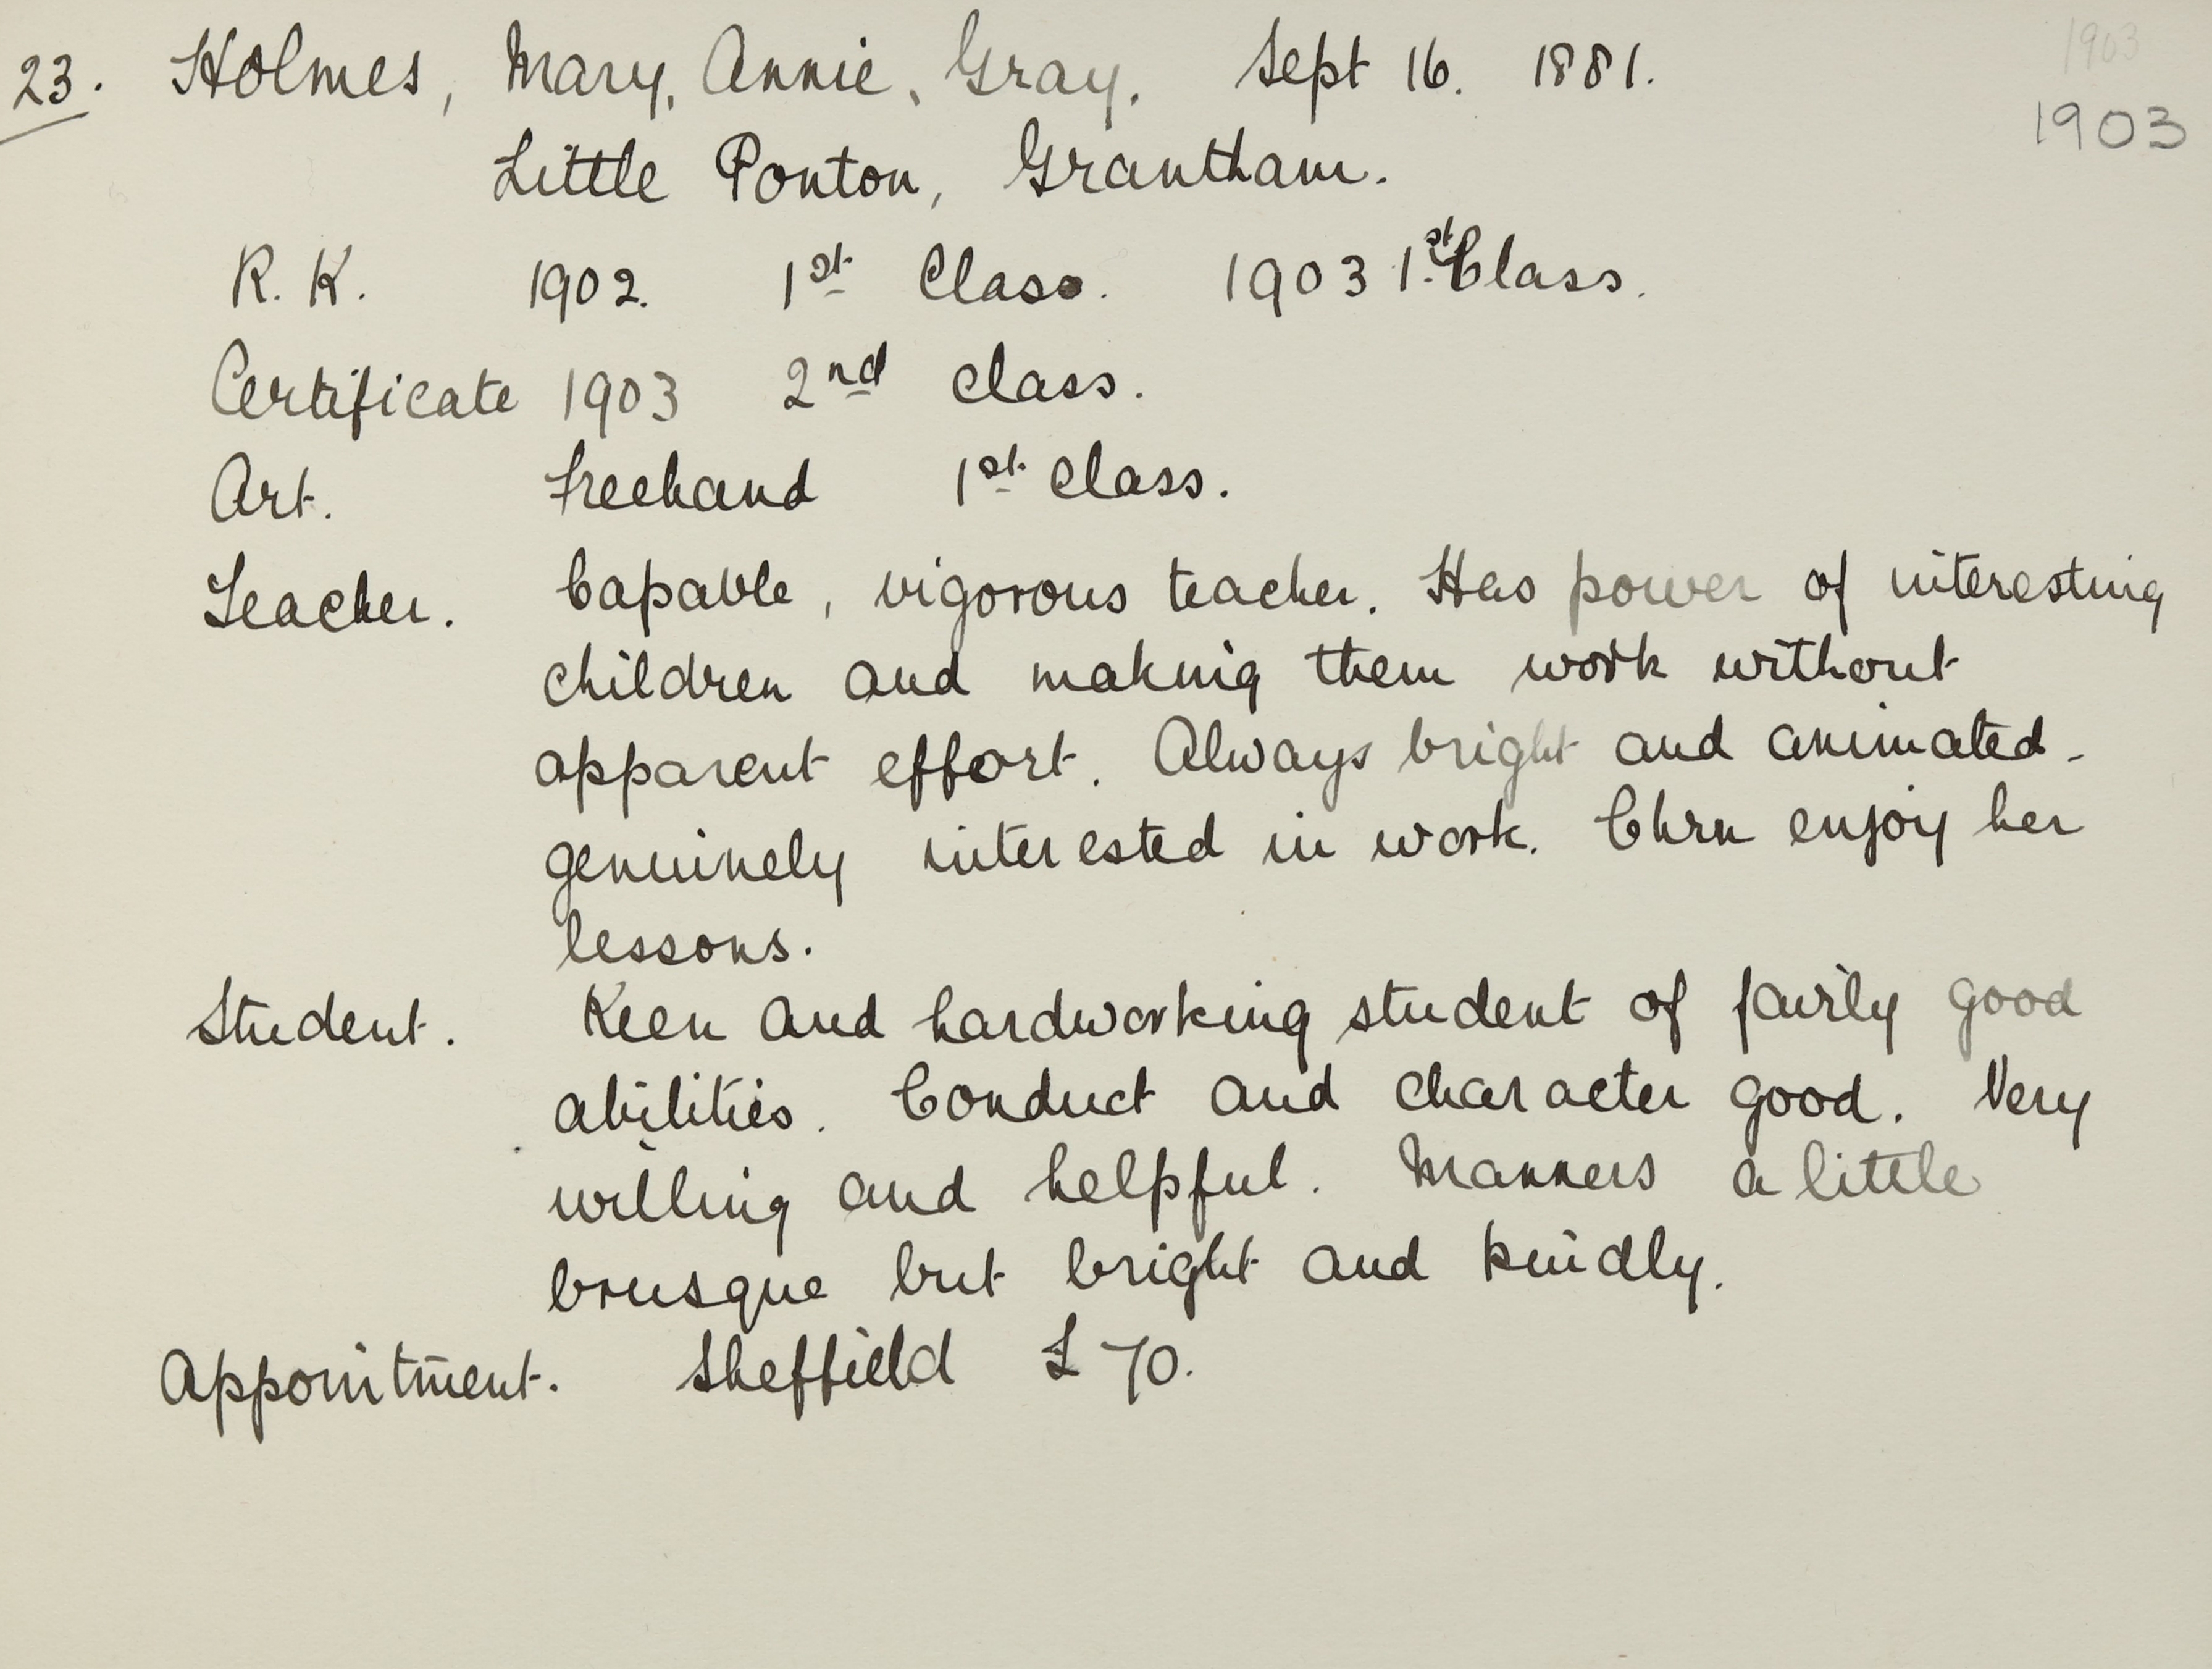 1903
23. Holmes, Mary, Annie, Gray. Sept 16. 1881.
1903
Little Ponton, Grantham.
R. K. 1902. 1st Class. 1903 1st Class.
Certificate 1903 2nd class.
Art. Freehand 1st class.
Teacher. Capable, vigorous teacher. Has power of interesting
children and making them work without
apparent effort. Always bright and animated -
genuinely interested in work. Chrn enjoy her
lessons.
Student. Keen and hardworking student of fairly good
abilities. Conduct and character good. Very
willing and helpful. Manners a little
brusque but bright and kindly.
Appointment. Sheffield £70.